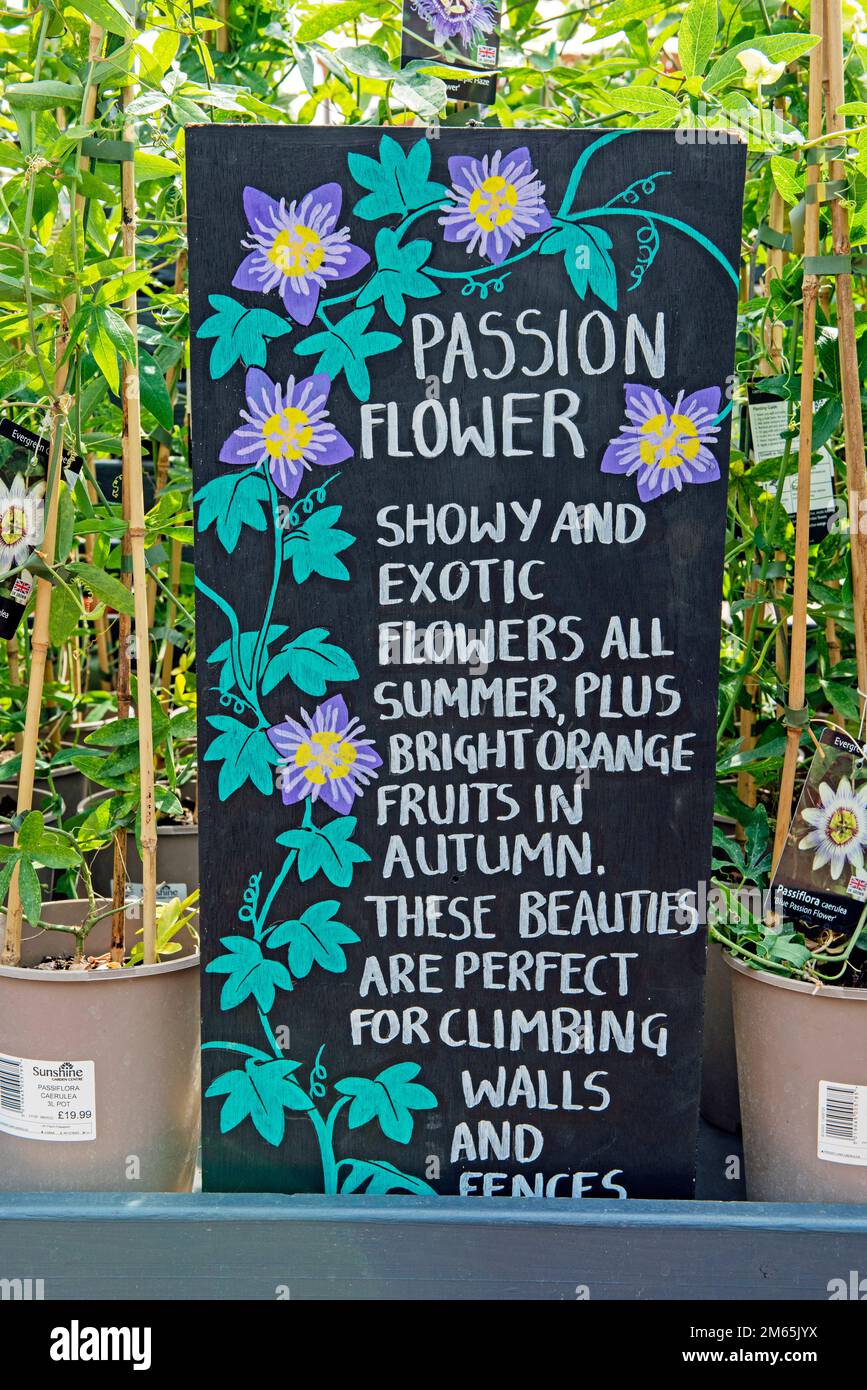 PASSION
FLOWER
SHOWY AND
EXOTIC
FLOWERS ALL
SUMMER, PLUS
BRIGHT ORANGE
FRUITS IN
AUTUMN.
THESE BEAUTIES
ARE PERFECT
FOR CLIMBING
WALLS
AND
FENCES
Sunshine
GARDEN CENTRE
PASSIFLORA
CAERULEA
3L POT
£19.99
Passiflora caerulea
'Blue Passion Flower'
alamy
Image ID: 2M65JYX
www.alamy.com